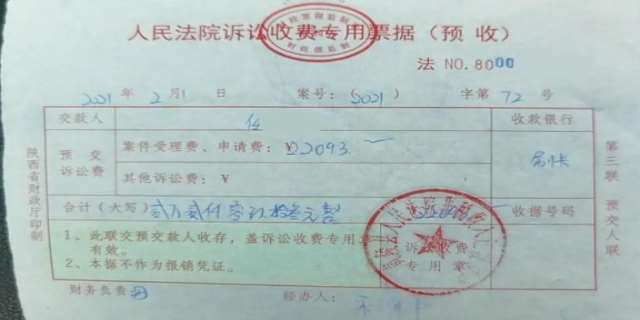 人民法院诉讼收费专用票据（预收）
法 NO.8000
2021年2月1日 案号：（2021） 字第72号
交款人 伍 收款银行
预交诉讼费 案件受理费、申请费：¥22093.
其他诉讼费：¥
合计（大写）贰万贰仟零玖拾叁元整 收据号码
1、此联交预交款人收存，盖诉讼收费专用
有效。
2、本据不作为报销凭证。
诉讼收费
专用章
财务负责 经办人：
陕西省财政厅印制
第三联 预交人联